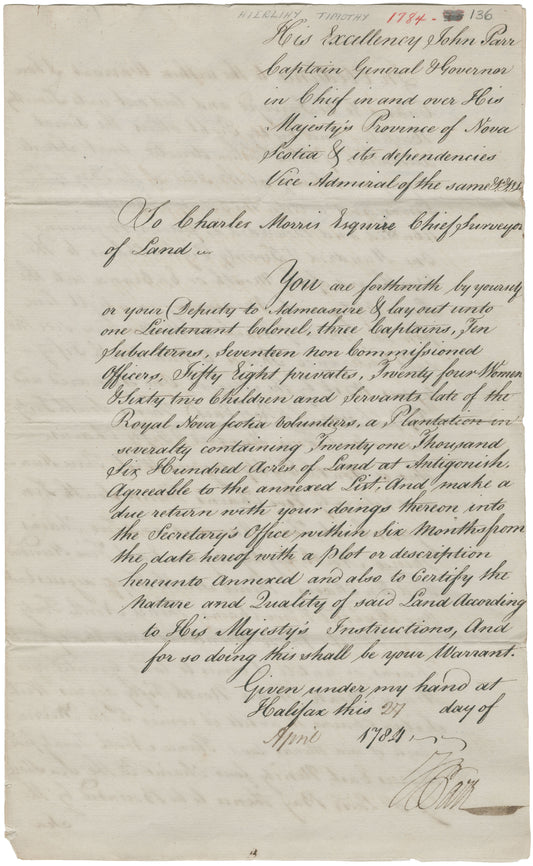 HIERLIHY TIMOTHY 1784 - 136
His Excellency John Parr
Captain General & Governor
in Chief in and over His
Majesty's Province of Nova
Scotia & its dependencies
Vice Admiral of the same &c &c &c
To Charles Morris Esquire Chief Surveyor
of Land
You are forthwith by yourself
or your Deputy to Admeasure & lay out unto
one Lieutenant Colonel, three Captains, Ten
Subalterns, Seventeen non Commissioned
Officers, Fifty Eight privates, Twenty four Women
& Sixty two Children and Servants late of the
Royal Nova Scotia Volunteers, a Plantation in
severalty containing Twenty one Thousand
Six Hundred Acres of Land at Antigonish,
Agreable to the annexed List; And make a
due return with your doings thereon into
the Secretary's Office within Six Months from
the date hereof with a plot or description
hereunto Annexed and also to Certify the
Nature and Quality of said Land According
to His Majesty's Instructions, And
for so doing this shall be your Warrant.
Given under my hand at
Halifax this 27 day of
April 1784
J Parr